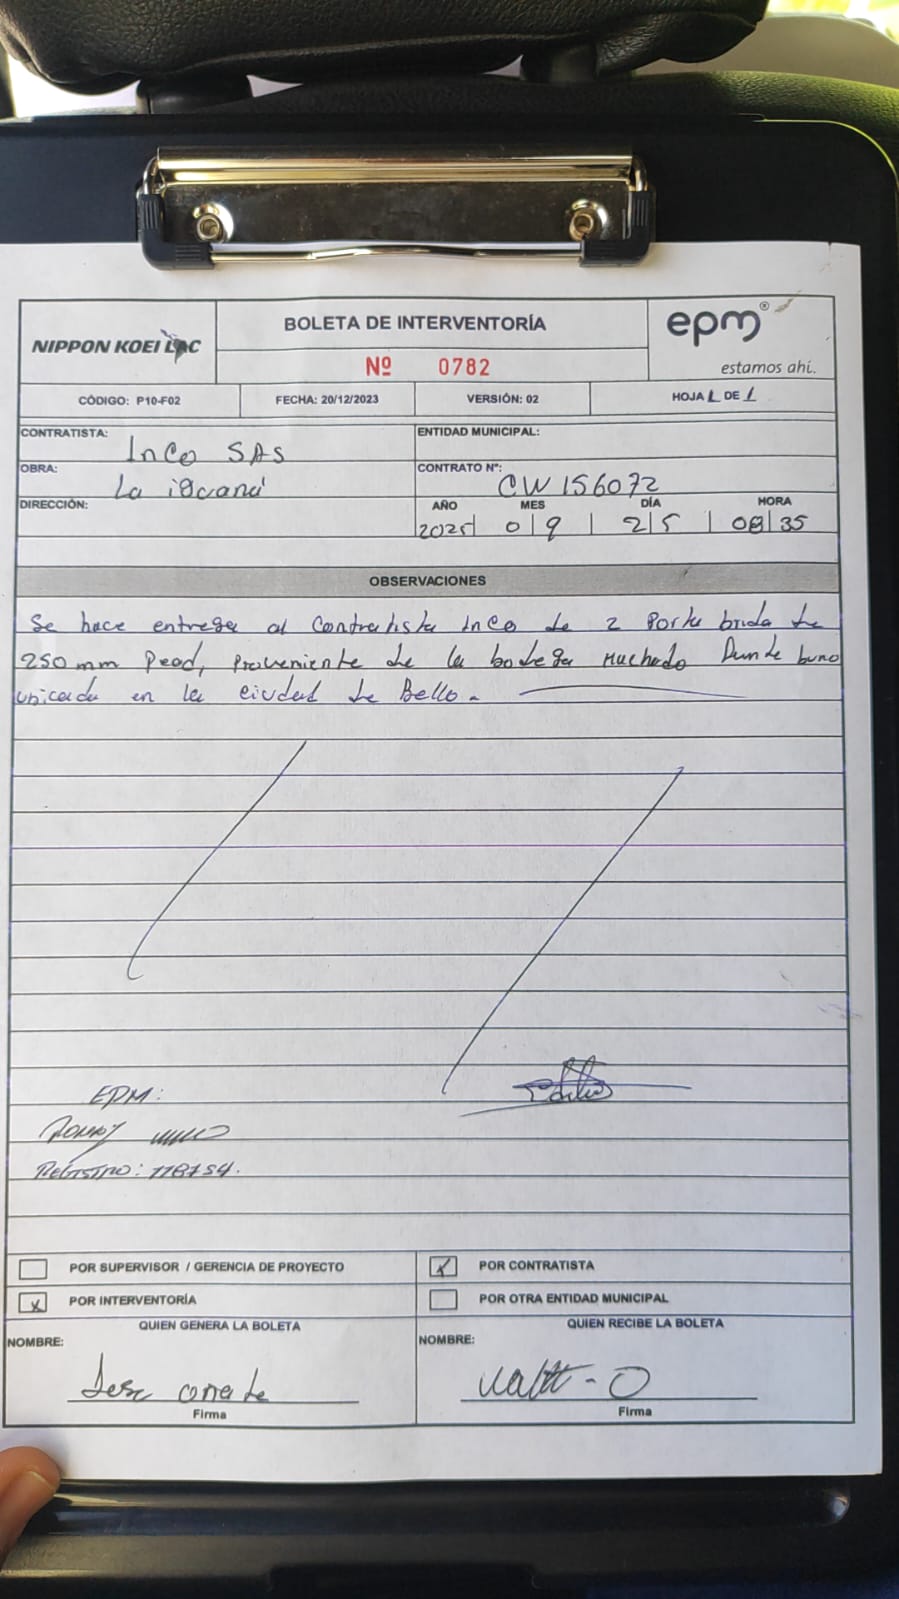 NIPPON KOEI LAC
BOLETA DE INTERVENTORÍA
Nº 0782
epm®
estamos ahí.
CÓDIGO: P10-F02
FECHA: 20/12/2023
VERSIÓN: 02
HOJA 1 DE 1
CONTRATISTA: InCo SAS
ENTIDAD MUNICIPAL:
OBRA: La iguaná
CONTRATO N°: CW156072
DIRECCIÓN:
AÑO MES DÍA HORA
2025 09 25 08 35
OBSERVACIONES
Se hace entrega al Contratista InCo de 2 Porta brida de
250mm Pead, Proveniente de la bodega Machado
ubicada en la ciudad de Bello.
EPM:
REGISTRO:
POR SUPERVISOR / GERENCIA DE PROYECTO
POR CONTRATISTA
x POR INTERVENTORÍA
POR OTRA ENTIDAD MUNICIPAL
QUIEN GENERA LA BOLETA
QUIEN RECIBE LA BOLETA
NOMBRE:
NOMBRE:
Firma
Firma